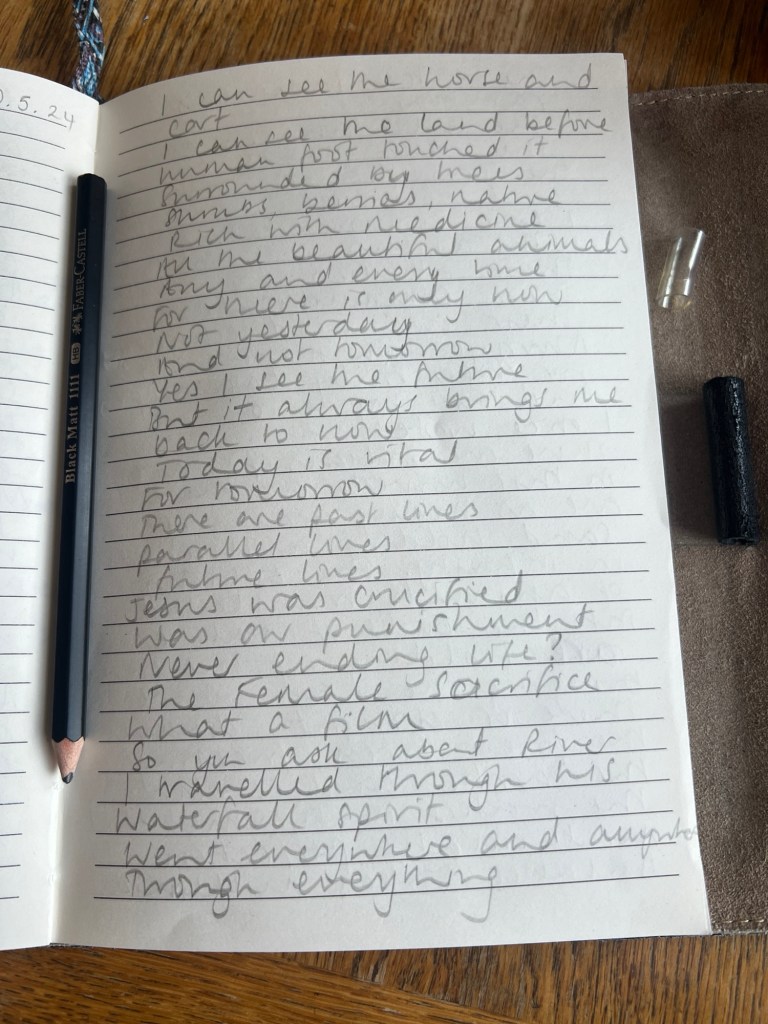 0.5.24
I can see the horse and
cart
I can see the land before
human foot touched it
Surrounded by trees
Shrubs, berries, nature
Rich with medicine
All the beautiful animals
Any and every time
For there is only now
Not yesterday
And not tomorrow
Yes I see the future
But it always brings me
back to now
Today is vital
For tomorrow
There are past lines
parallel lines
future lines
Jesus was crucified
Was our punishment
Never ending life?
The Female Sacrifice
What a film
So you ask about River
I travelled through his
Waterfall spirit
Went everywhere and
Through everything
Black Matt 1111 HB FABER-CASTELL